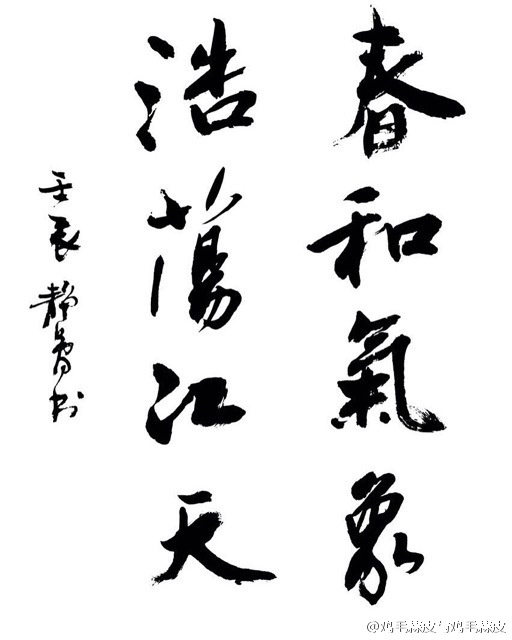 春和氣象
浩蕩江天
壬辰 靜魯书
@鸡毛蒜皮与鸡毛蒜皮